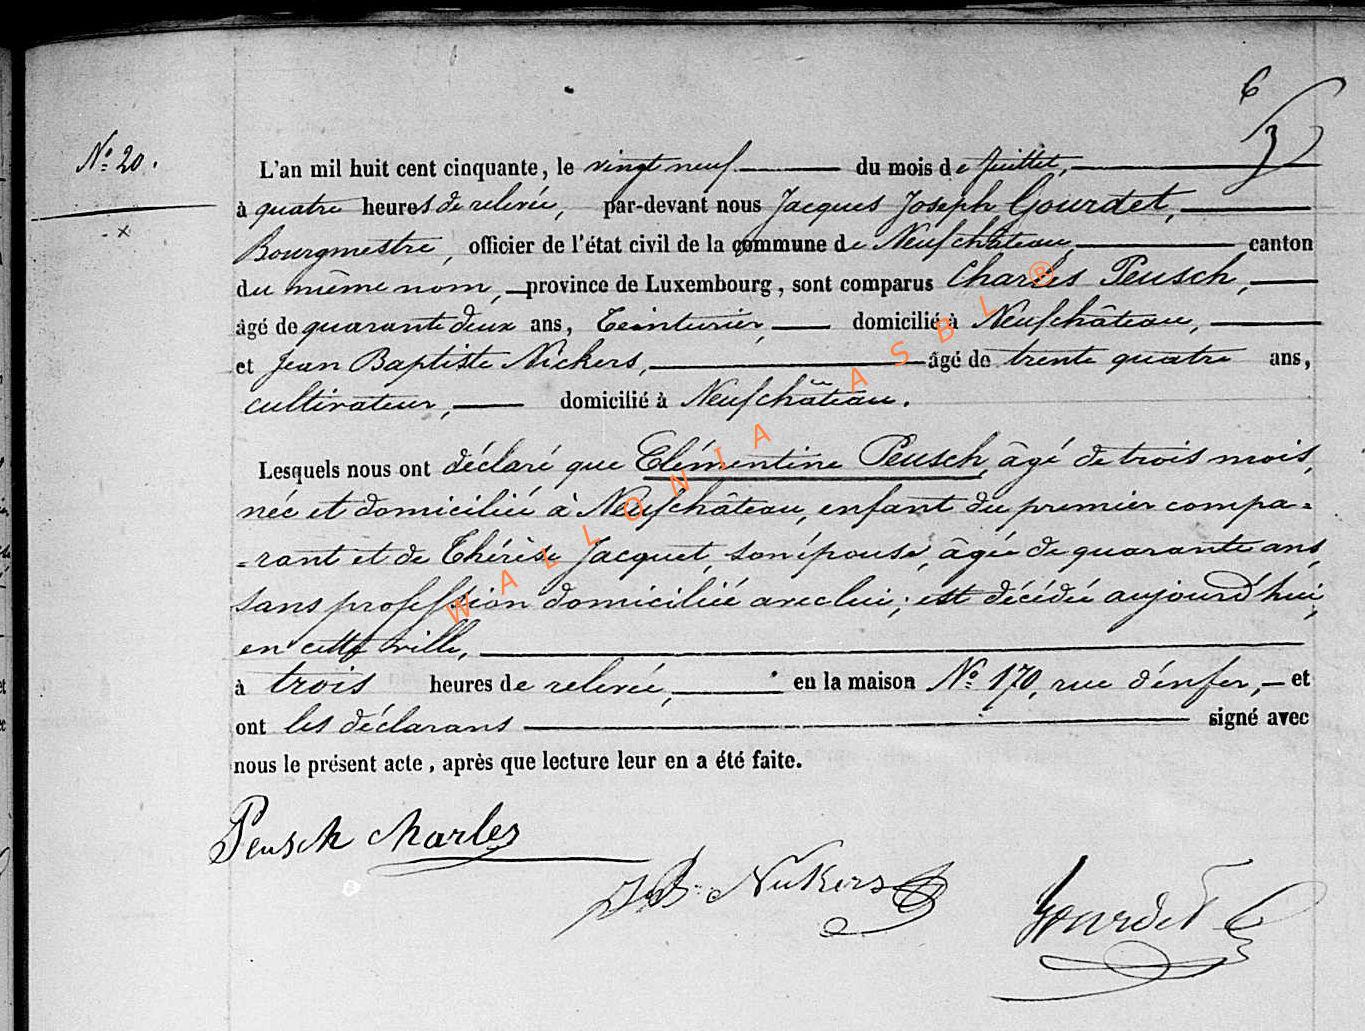 6
3
N° 20.
L'an mil huit cent cinquante, le vingt neuf du mois de Juillet,
à quatre heures de relevée, par-devant nous Jacques Joseph Gourdet,
Bourgmestre, officier de l'état civil de la commune de Neufchâteau canton
du même nom, province de Luxembourg, sont comparus Charles Peusch,
âgé de quarante deux ans, Teinturier, domicilié à Neufchâteau,
et Jean Baptiste Nickers, âgé de trente quatre ans,
cultivateur, domicilié à Neufchâteau.
Lesquels nous ont déclaré que Clémentine Peusch, âgé de trois mois,
née et domiciliée à Neufchâteau, enfant du premier compa=
=rant et de Thérèse Jacquet, son épouse, âgée de quarante ans,
sans profession domiciliée avec lui; est décédée aujourd'hui,
en cette ville,
à trois heures de relevée, en la maison N° 170, rue d'enfer, et
ont les déclarans signé avec
nous le présent acte, après que lecture leur en a été faite.
Peusch Charles
J B Nickers
Gourdet
WALLONIA ASBL ®